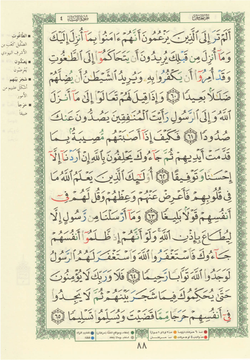 أَلَمْ تَرَ إِلَى الَّذِينَ يَزْعُمُونَ أَنَّهُمْ ءَامَنُوا بِمَا أُنزِلَ إِلَيْكَ
وَمَا أُنزِلَ مِن قَبْلِكَ يُرِيدُونَ أَن يَتَحَاكَمُوا إِلَى الطَّاغُوتِ
وَقَدْ أُمِرُوا أَن يَكْفُرُوا بِهِ وَيُرِيدُ الشَّيْطَانُ أَن يُضِلَّهُمْ
ضَلَالًا بَعِيدًا ٦٠ وَإِذَا قِيلَ لَهُمْ تَعَالَوْا إِلَى مَا أَنزَلَ
اللَّهُ وَإِلَى الرَّسُولِ رَأَيْتَ الْمُنَافِقِينَ يَصُدُّونَ عَنكَ
صُدُودًا ٦١ فَكَيْفَ إِذَا أَصَابَتْهُم مُّصِيبَةٌ بِمَا
قَدَّمَتْ أَيْدِيهِمْ ثُمَّ جَاءُوكَ يَحْلِفُونَ بِاللَّهِ إِنْ أَرَدْنَا إِلَّا
إِحْسَانًا وَتَوْفِيقًا ٦٢ أُولَئِكَ الَّذِينَ يَعْلَمُ اللَّهُ مَا
فِي قُلُوبِهِمْ فَأَعْرِضْ عَنْهُمْ وَعِظْهُمْ وَقُل لَّهُمْ فِي
أَنفُسِهِمْ قَوْلًا بَلِيغًا ٦٣ وَمَا أَرْسَلْنَا مِن رَّسُولٍ إِلَّا
لِيُطَاعَ بِإِذْنِ اللَّهِ وَلَوْ أَنَّهُمْ إِذ ظَّلَمُوا أَنفُسَهُمْ
جَاءُوكَ فَاسْتَغْفَرُوا اللَّهَ وَاسْتَغْفَرَ لَهُمُ الرَّسُولُ
لَوَجَدُوا اللَّهَ تَوَّابًا رَّحِيمًا ٦٤ فَلَا وَرَبِّكَ لَا يُؤْمِنُونَ
حَتَّى يُحَكِّمُوكَ فِيمَا شَجَرَ بَيْنَهُمْ ثُمَّ لَا يَجِدُوا
فِي أَنفُسِهِمْ حَرَجًا مِّمَّا قَضَيْتَ وَيُسَلِّمُوا تَسْلِيمًا ٦٥
٨٨